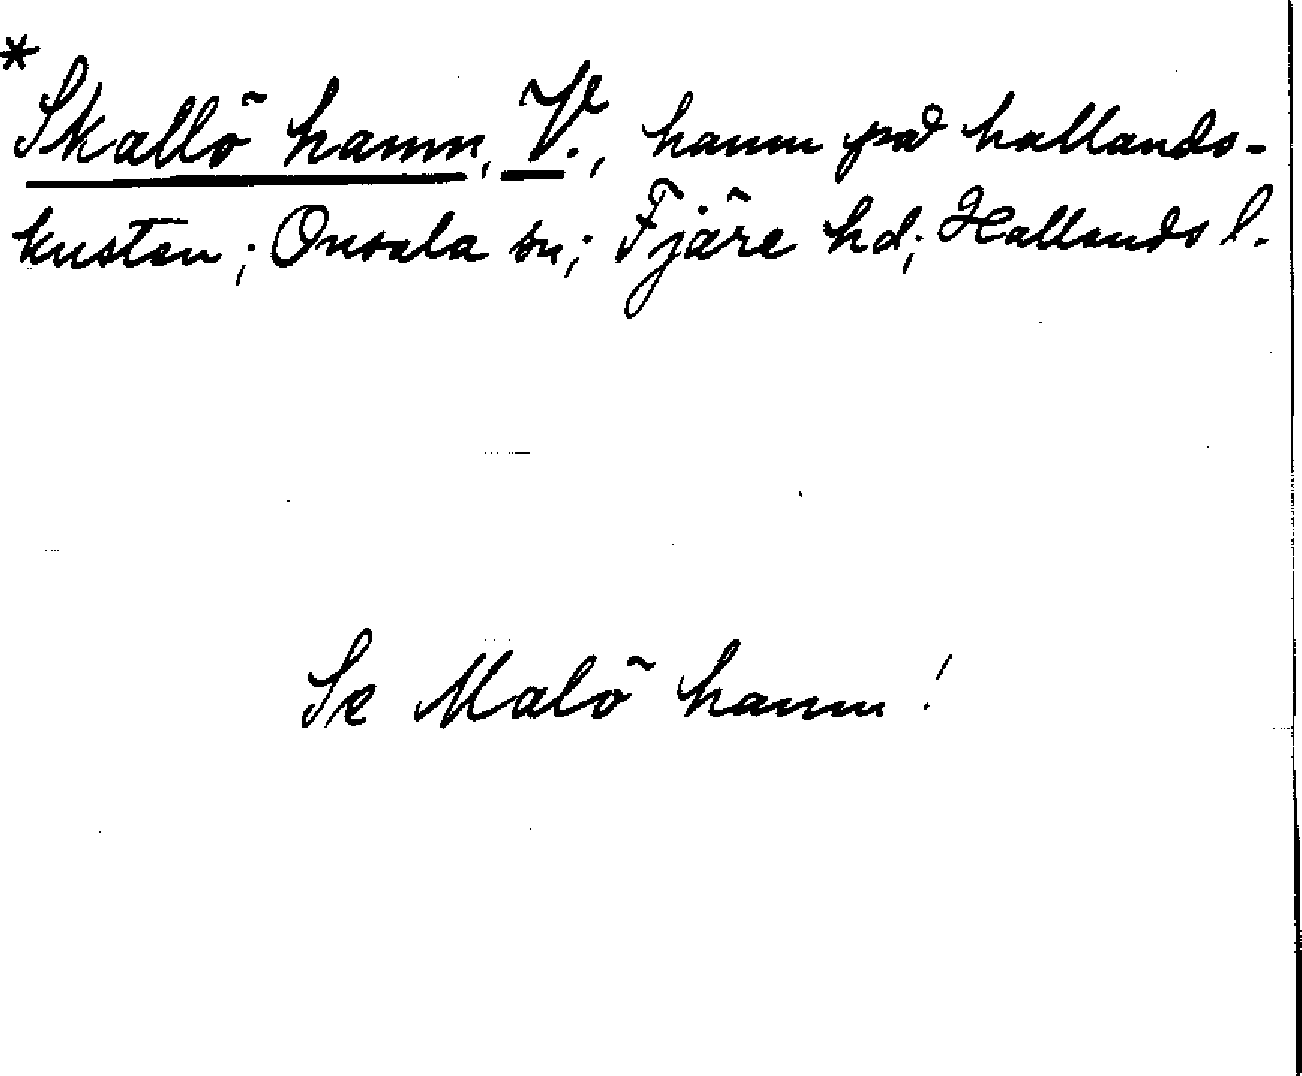 * Skallö hamn, V., hamn på hallands-
kusten; Onsala sn; Fjäre hd; Hallands l.
Se Malö hamn!